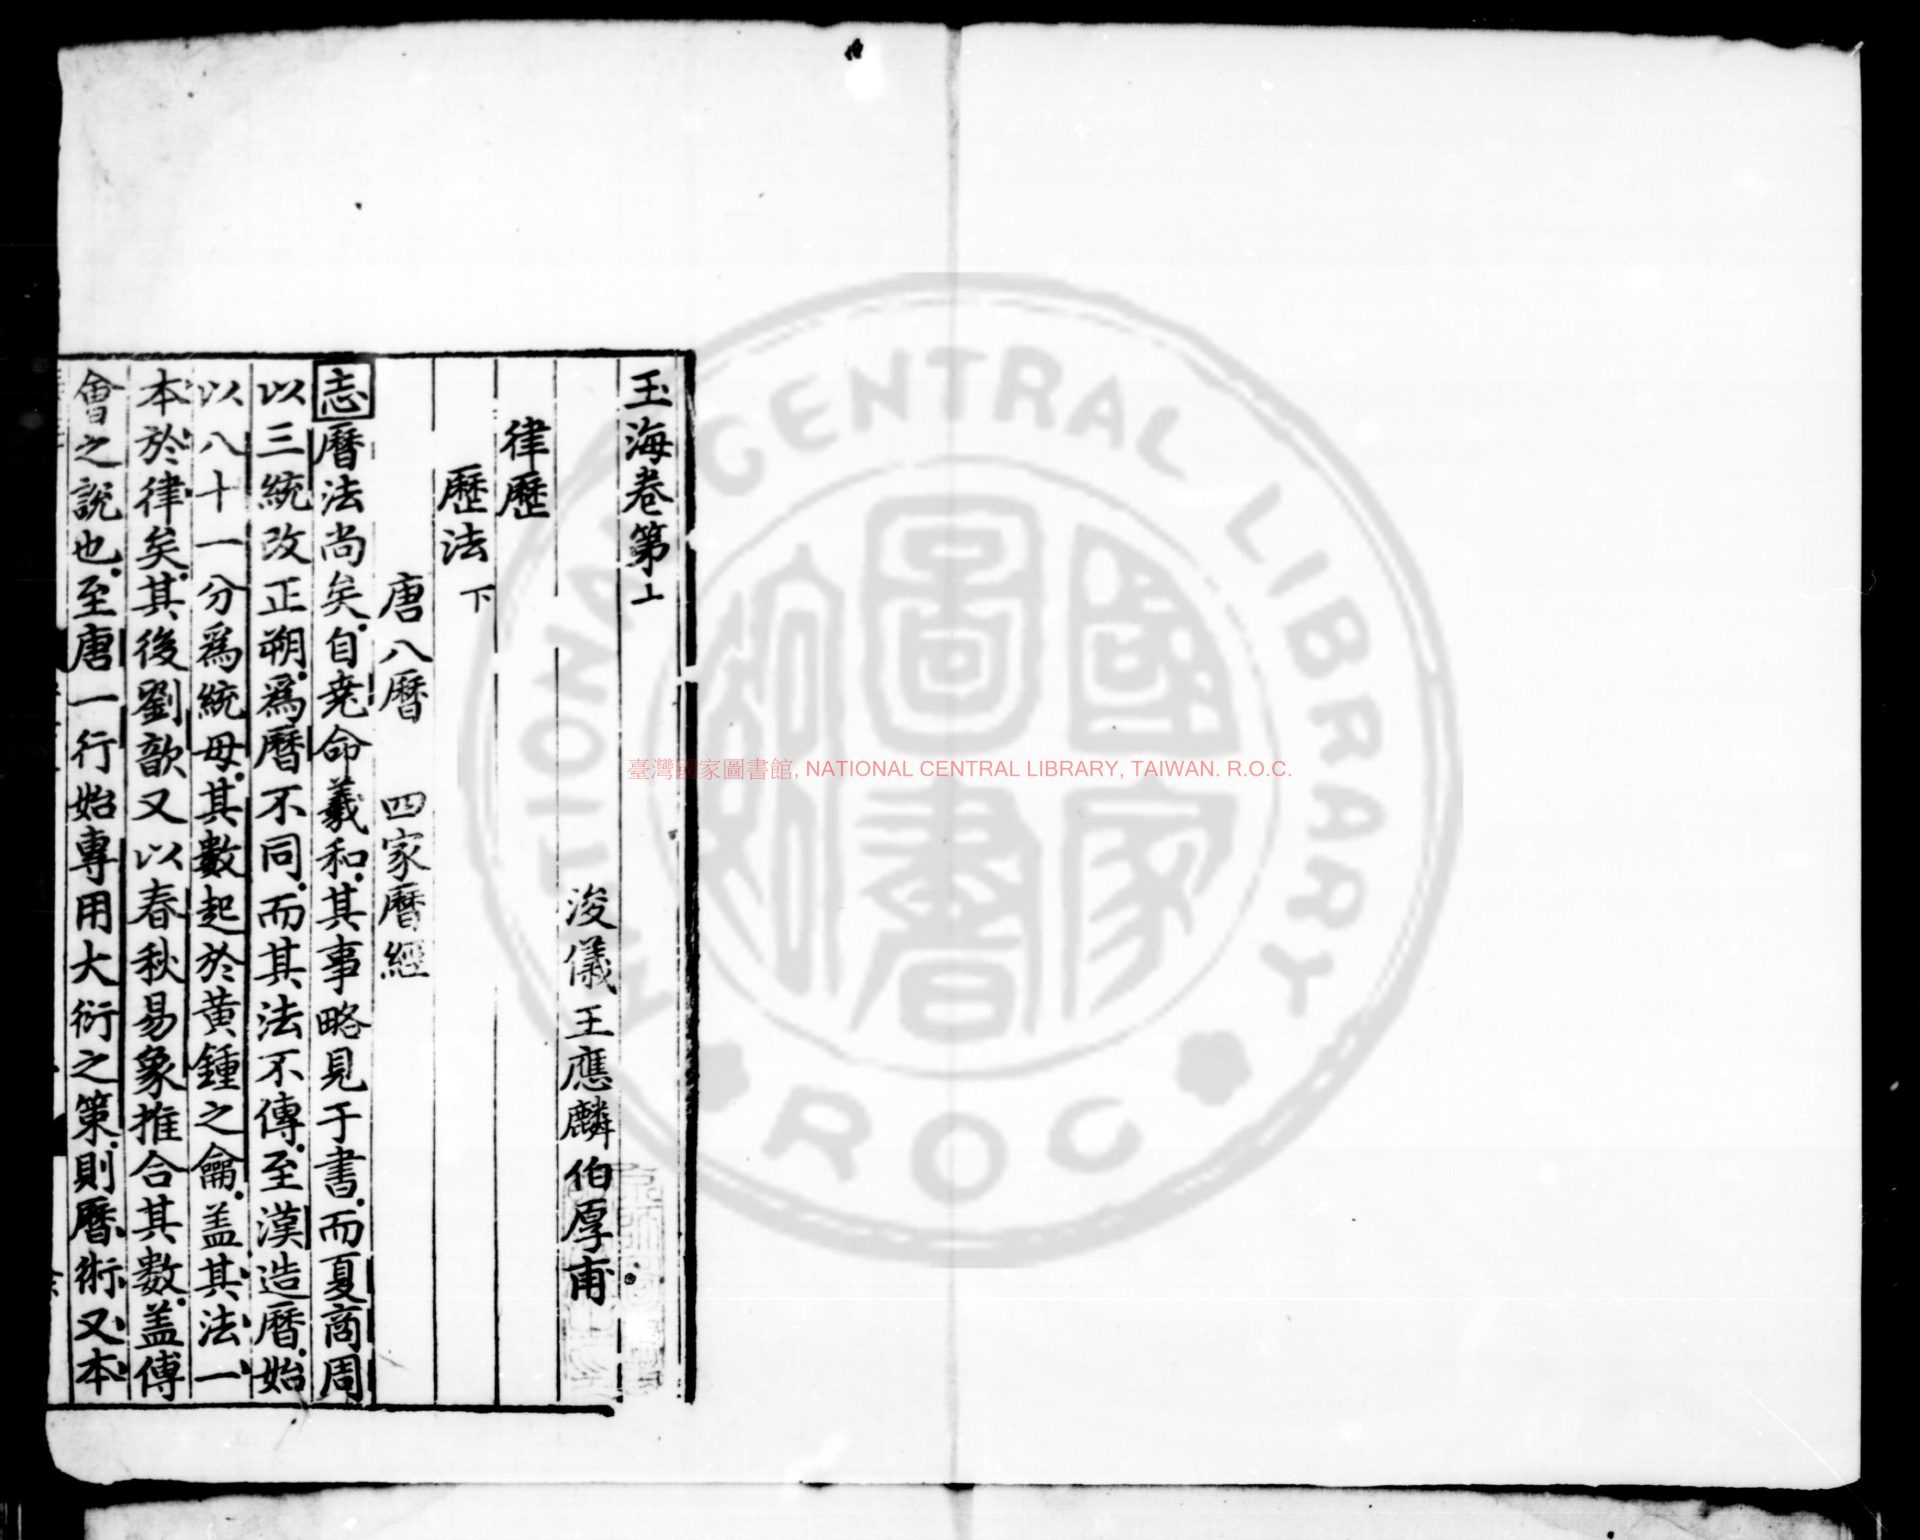 玉海卷第上
浚儀王應麟伯厚甫
律歷
歷法下
唐八曆 四家曆經
志曆法尚矣自堯命羲和其事略見于書而夏商周
以三統改正朔爲曆不同而其法不傳至漢造曆始
以八十一分爲統母其數起於黃鍾之龠盖其法一
本於律矣其後劉歆又以春秋易象推合其數盖傅
會之說也至唐一行始專用大衍之策則曆術又本
臺灣國家圖書館, NATIONAL CENTRAL LIBRARY, TAIWAN. R.O.C.
NATIONAL CENTRAL LIBRARY
ROC
國家圖書館